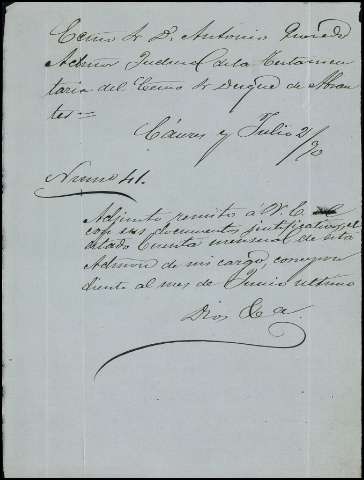 Excmo Sr D. Antonio Quesada
Admor Judicial de la Testamen
taria del Excmo Sr Duque de Abran
tes =
Cáceres y Julio 2/
/70
Numo 41.
Adjunto remito á V. E.
con sus documentos justificativos, el
estado Cuenta mensual de esta
Admon de mi cargo, correspon
diente al mes de Junio ultimo
Dios &a.